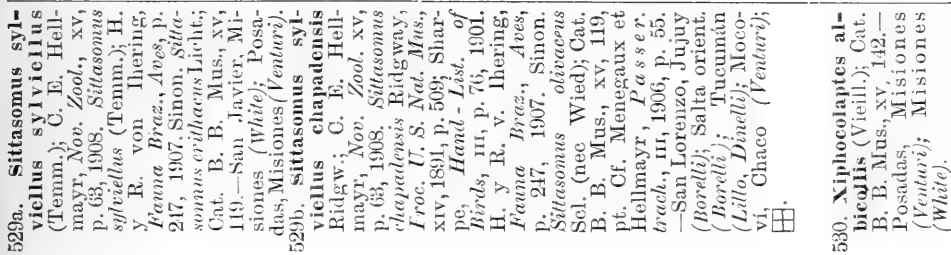 529a. Sittasomus syl-
vicllus sylviellus
(Temm.); C. E. Hell-
mayr, Nov. Zool., xv,
p. 63, 1908. Sittasomus
sylviellus (Temm.); H.
y R. von Ihering,
Fauna Braz., Aves, p.
247, 1907. Simon. Sitta-
somus erithacus Licht.;
Cat. B. B. Mus., xv,
119.—San Javier, Mi-
siones (White); Posa-
das, Misiones (Venturi).
529b. Sittasomus syl-
viellus chapadensis
Ridgw.; C. E. Hell-
mayr, Nov. Zool. xv,
p. 63, 1908. Sittasomus
chapadensis Ridgway,
Proc. U. S. Nat. Mus.,
xiv, 1891, p. 509; Shar-
pe, Hand-List. of
Birds, III, p. 76, 1901.
H. y R. v. Ihering,
Fauna Braz., Aves,
p. 247, 1907. Simon.
Sittasomus olivaceus
Scl. (nec Wied); Cat.
B. B. Mus., xv, 119,
pt. Cf. Menegaux et
Hellmayr, Passer.
trach., III, 1906, p. 55.
—San Lorenzo, Jujuy
(Borelli); Salta orient.
(Borelli); Tucumán
(Lillo, Dinelli); Moco-
vi, Chaco (Venturi);
530. Xiphocolaptes al-
bicollis (Vieill.); Cat.
B. B. Mus., xv, 142.—
Posadas, Misiones
(Venturi); Misiones
(White)